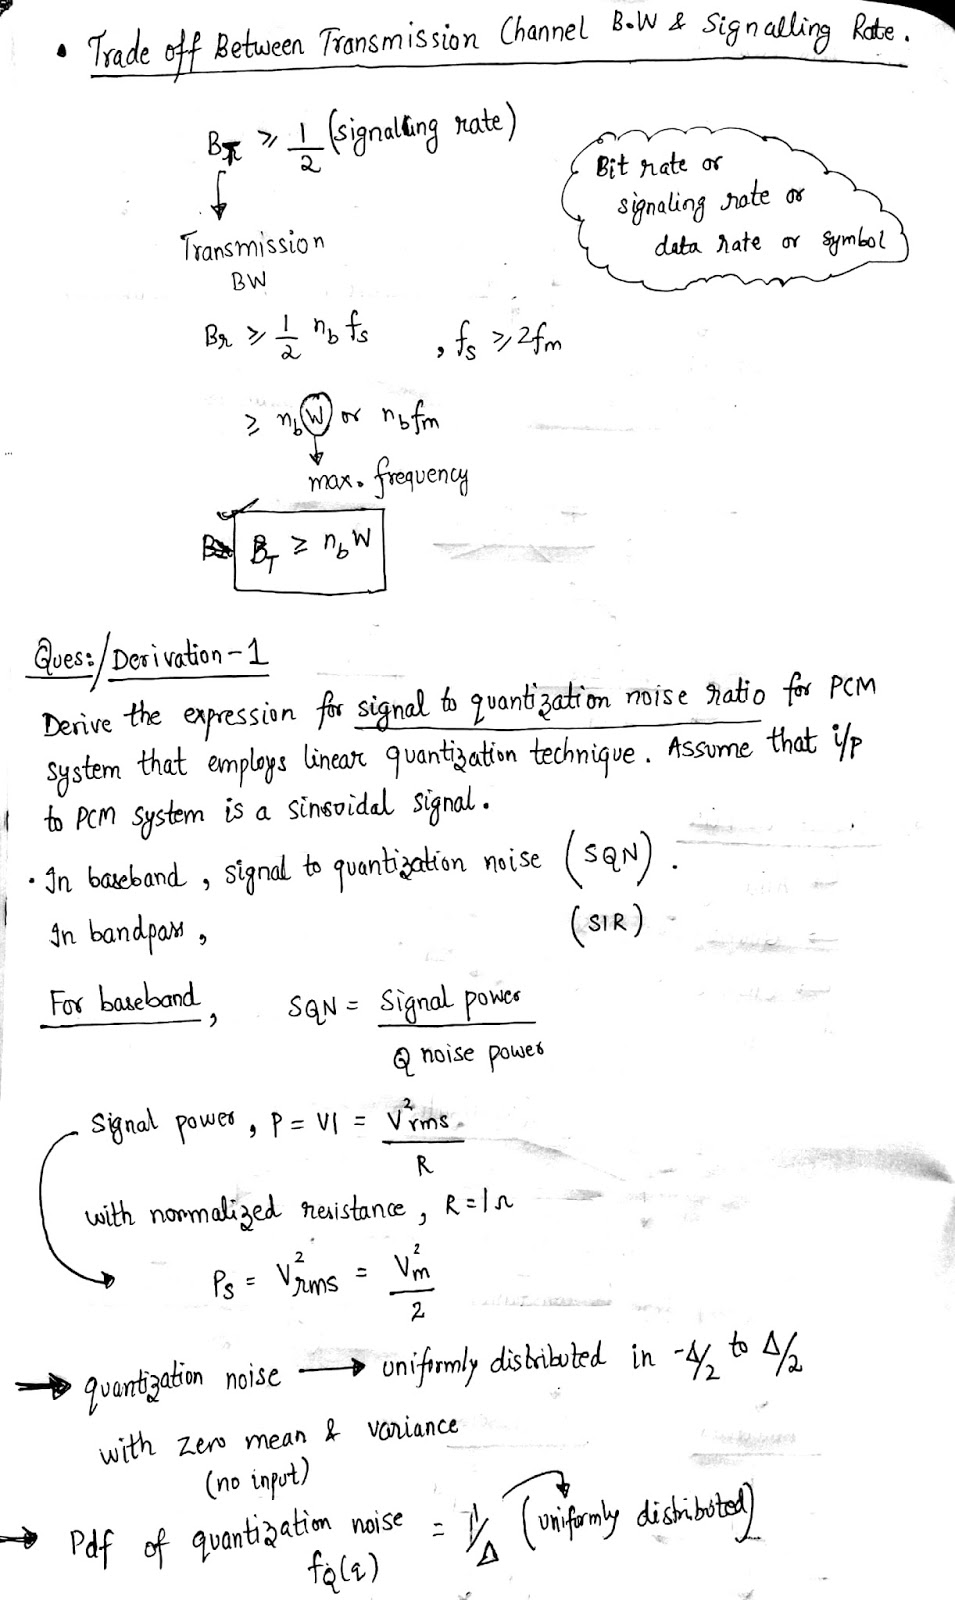 • Trade off Between Transmission Channel B.W & Signalling Rate.
B_T ≥ 1/2 (signalling rate)
Transmission
BW
Bit rate or
signaling rate or
data rate or symbol
Br ≥ 1/2 n_b f_s , f_s ≥ 2fm
≥ n_b W or n_b fm
max. frequency
B_T ≥ n_b W
Ques:/Derivation-1
Derive the expression for signal to quantization noise ratio for PCM
system that employs linear quantization technique. Assume that i/p
to PCM system is a sinsoidal signal.
• In baseband, signal to quantization noise (SQN).
In bandpass, (SIR)
For baseband, SQN = Signal power / Q noise power
Signal power, P = VI = V²rms / R
with normalized resistance, R = 1Ω
Ps = V²rms = V²m / 2
→ quantization noise → uniformly distributed in -Δ/2 to Δ/2
with zero mean & variance
(no input)
→ Pdf of quantization noise = 1/Δ (uniformly distributed)
f_Q(q)